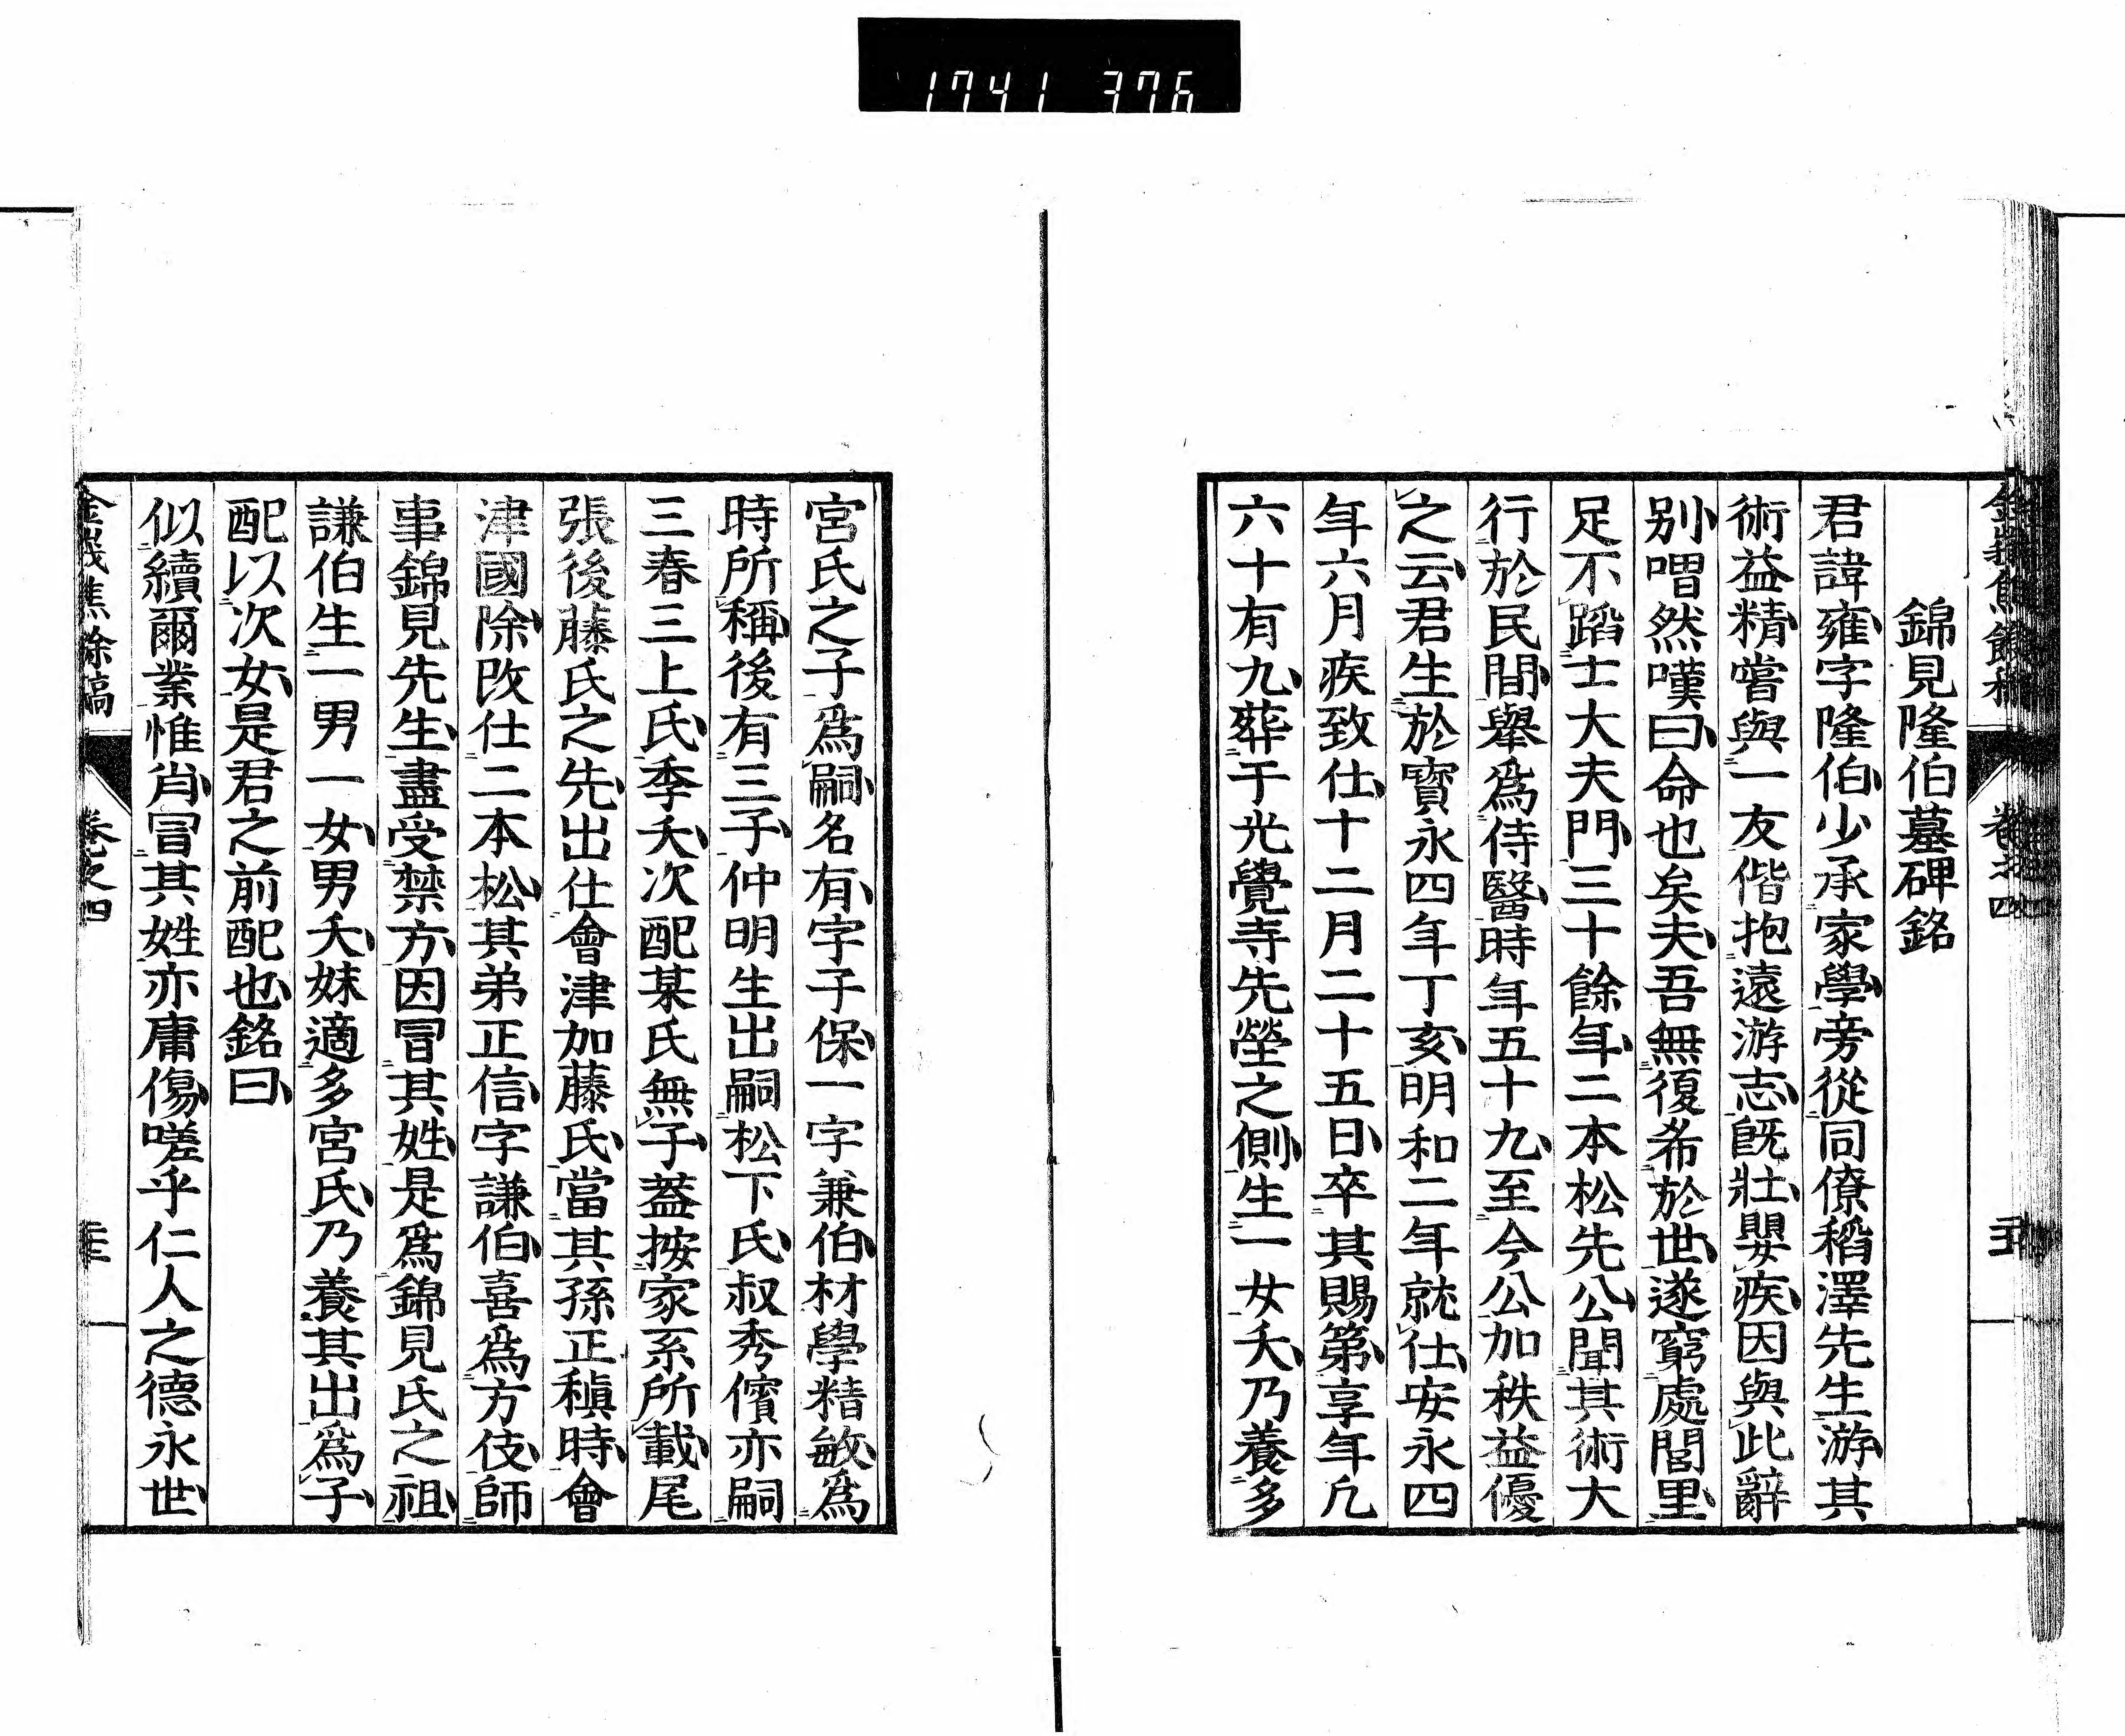 1741 376
錦見隆伯墓碑銘
君諱雍字隆伯少承家學旁從同僚稻澤先生游其
術益精嘗與一友偕抱遠游志旣壯嬰疾因與此辭
別喟然嘆曰命也矣夫吾無復希於世遂窮處閭里
足不蹈士大夫門三十餘年二本松先公聞其術大
行於民間舉爲侍醫時年五十九至今公加秩益優
之云君生於寶永四年丁亥明和二年就仕安永四
年六月疾致仕十二月二十五日卒其賜第享年凡
六十有九葬于光覺寺先塋之側生一女夭乃養多
宮氏之子爲嗣名有字子保一字兼伯材學精敏爲
時所稱後有三子仲明生出嗣松下氏叔秀儐亦嗣
三春三上氏季夭次配某氏無子葢按家系所載尾
張後藤氏之先出仕會津加藤氏當其孫正稹時會
津國除改仕二本松其弟正信字謙伯喜爲方伎師
事錦見先生盡受禁方因冒其姓是爲錦見氏之祖
謙伯生一男一女男夭妹適多宮氏乃養其出爲子
配以次女是君之前配也銘曰
似續爾業惟肖冒其姓亦庸傷嗟乎仁人之德永世
卷之四